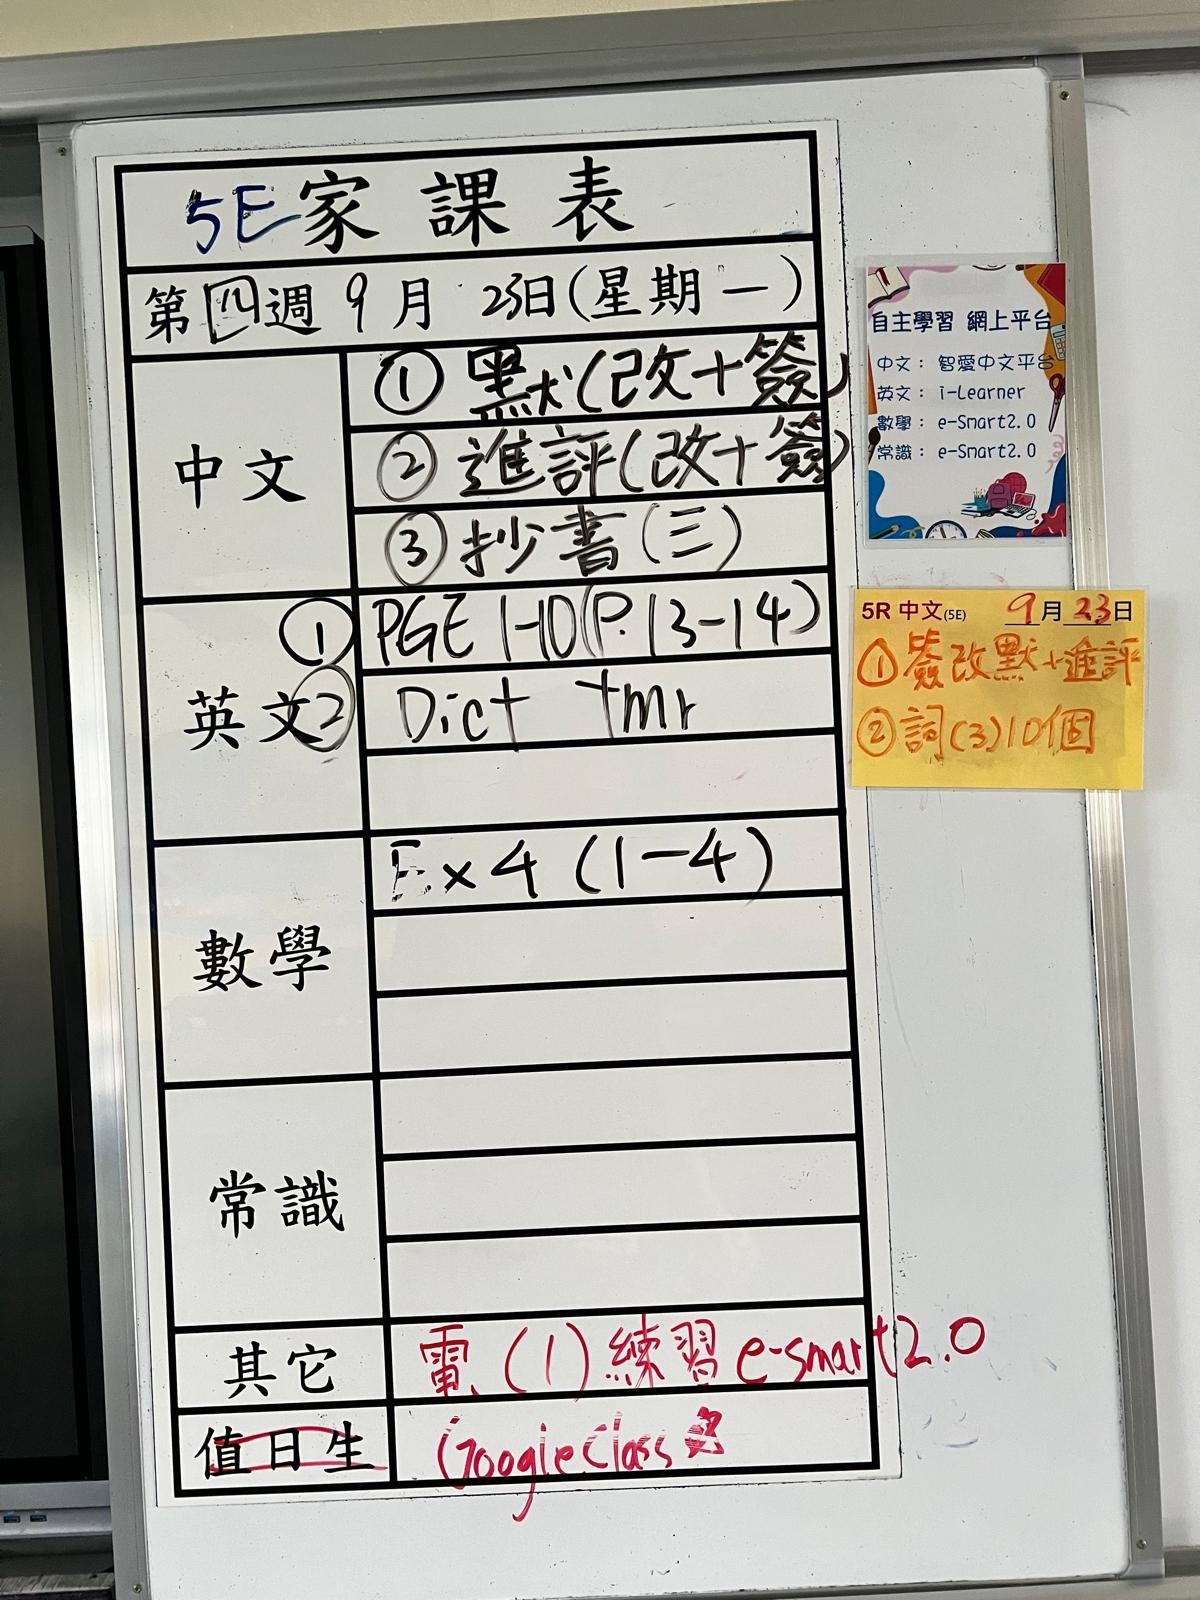 5E家課表
第四週 9月 23日(星期一)
中文
① 默(改+簽)
② 進評(改+簽)
③ 抄書(三)
英文
① PGE 1-10(P.13-14)
② Dict tmr
數學
Ex 4 (1-4)
常識
其它
電(1)練習 e-smart2.0
值日生
Google Class
自主學習 網上平台
中文: 智愛中文平台
英文: i-Learner
數學: e-Smart2.0
常識: e-Smart2.0
5R 中文(5E) 9月23日
①簽改默+進評
②詞(3)10個